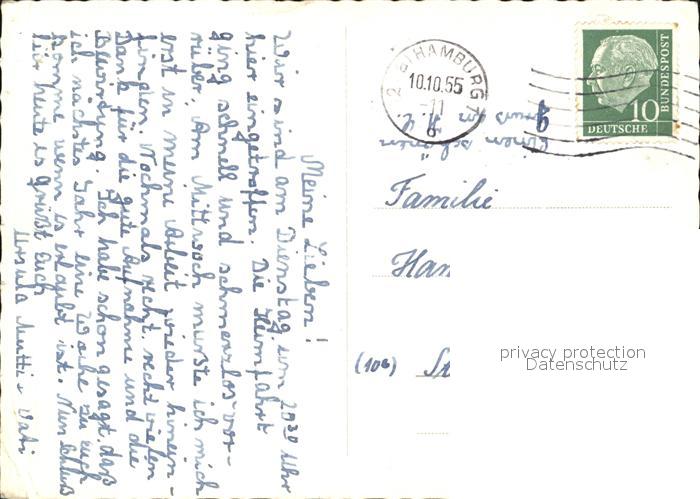 Meine Lieben!
Wir sind am Dienstag um 20³⁰ Uhr
hier eingetroffen. Die Heimfahrt
ging schnell und schmerzlos vor-
rüber. Am Mittwoch mußte ich mich
erst in meine Arbeit wieder hinein-
finden. Nochmals recht, recht vielen
Dank für die gute Aufnahme und die
Bewirtung. Ich habe schon gesagt, daß
ich nächstes Jahr eine Woche zu Euch
komme wenn es erlaubt ist. Nun Schluß
für heute es grüßt Euch
Ursula Mutti u Vati
HAMBURG 7
10.10.55
-11
2
DEUTSCHE
BUNDESPOST
10
einen schönen
Gruß an
Familie
Han
(10b)
privacy protection
Datenschutz